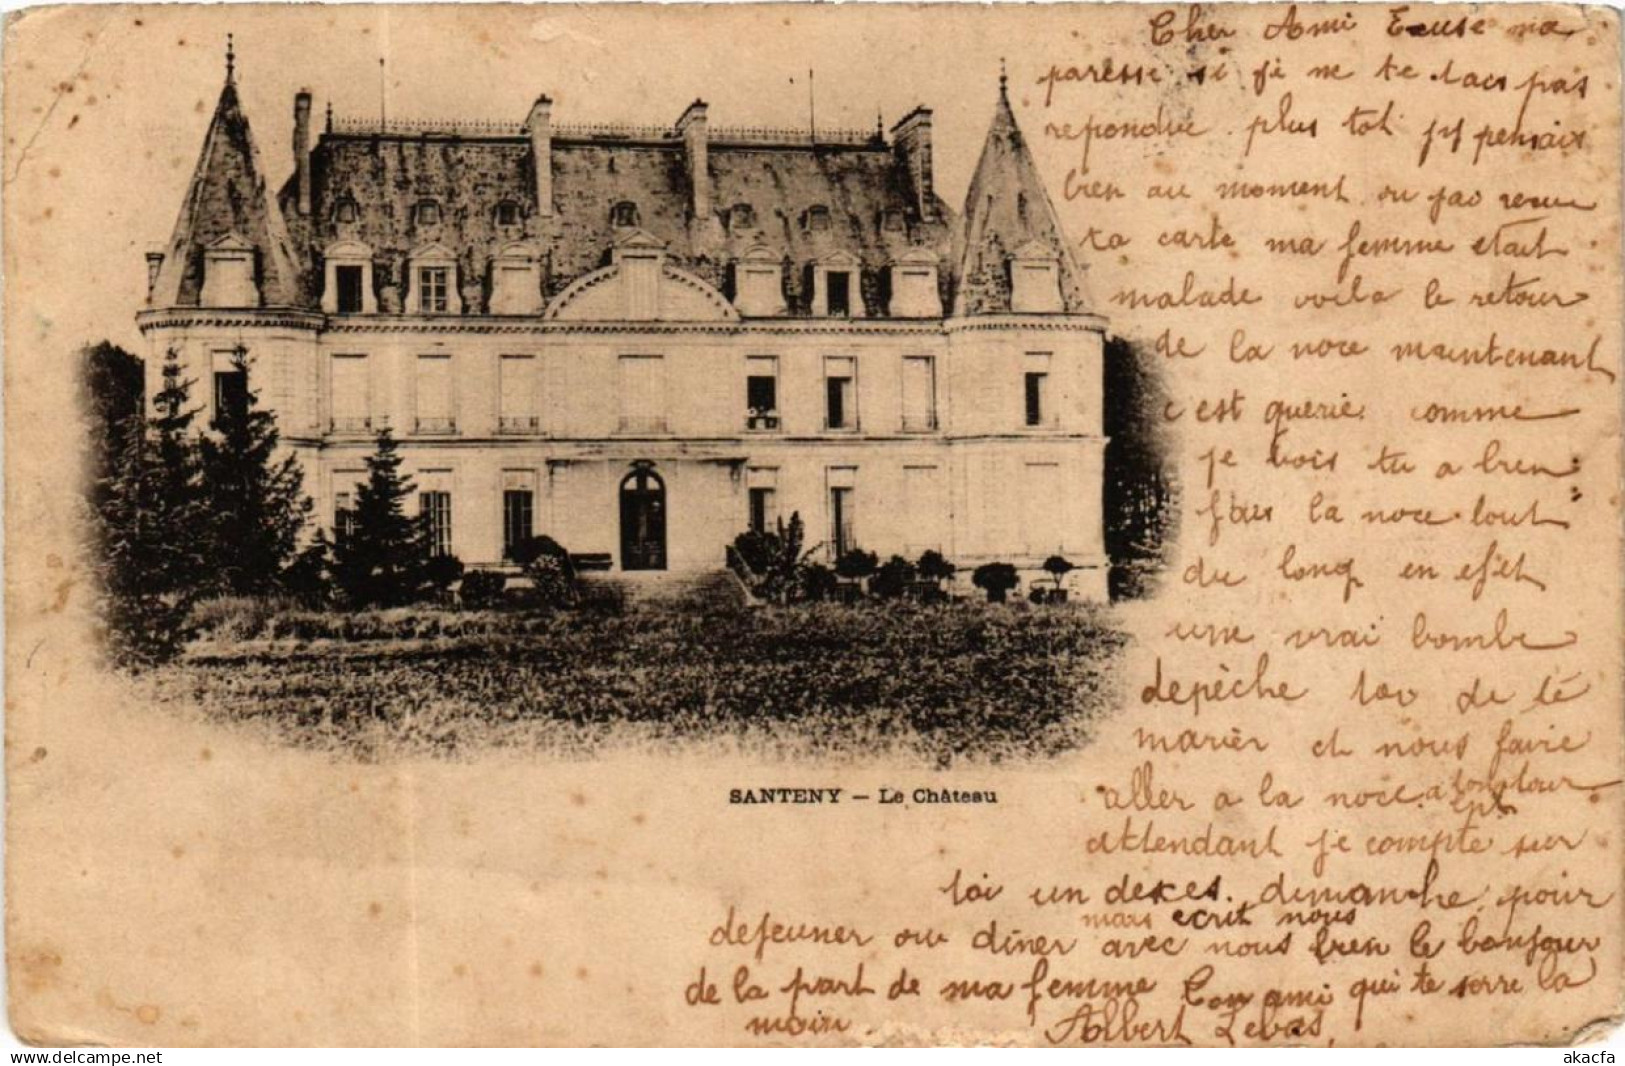 Cher Ami Excuse ma
paresse si je ne te pas
repondue plus tot jy pensais
bien au moment ou jao recu
ta carte ma femme etait
malade voila le retour
de la noce maintenant
c est guerie comme
je vois tu a bien
fais la noce tout
du long en efet
une vrai bombe
depèche toi de té
marièr et nous faire
aller a la noce a ton tour
ent
attendant je compte sur
toi un desces dimanche pour
mais ecrit nous
dejeuner ou diner avec nous bien le bonjour
de la part de ma femme Ton ami qui te serre la
main.
Albert Lebas
SANTENY — Le Château
www.delcampe.net
akacfa